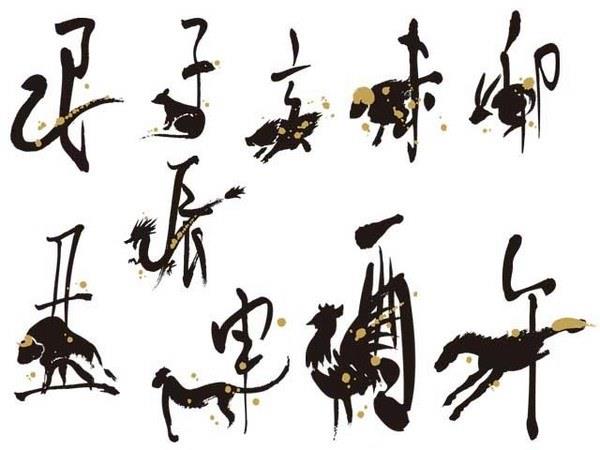 巳 子 亥 未 卯
辰
丑 申 酉 午